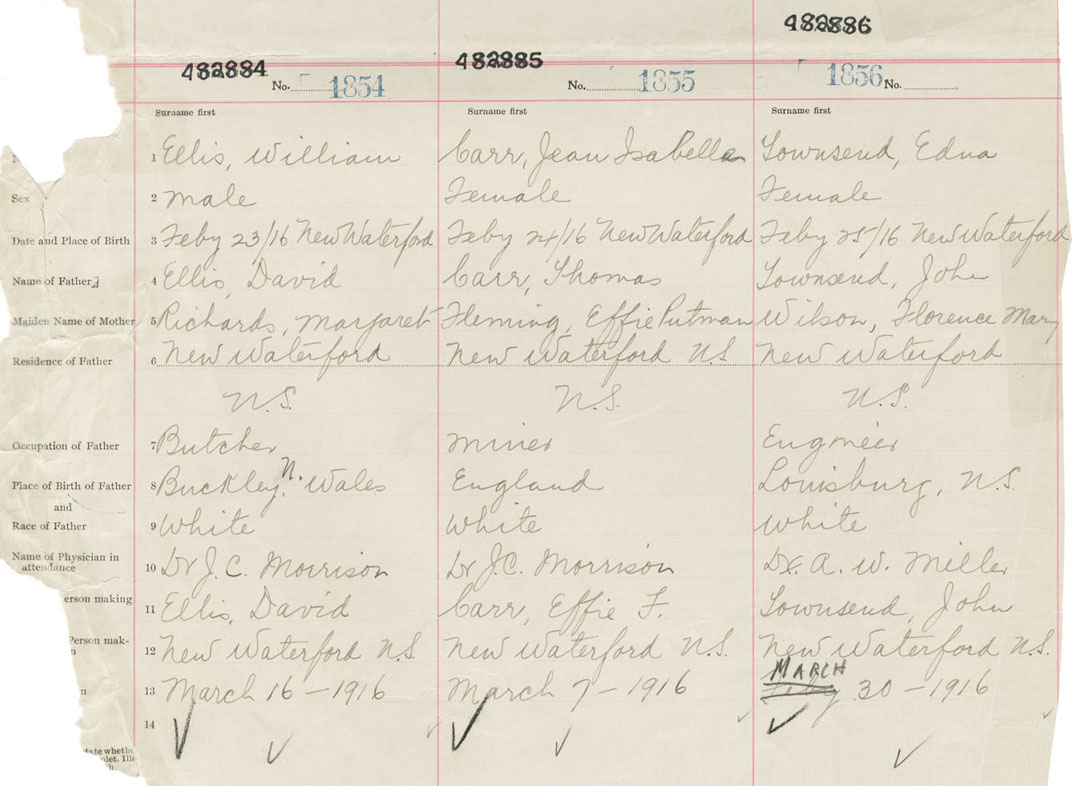 482884 482885 482886
No. 1854 No. 1855 1856 No.
Surname first Surname first Surname first
1 Ellis, William Carr, Jean Isabella Townsend, Edna
Sex 2 Male Female Female
Date and Place of Birth 3 Feby 23/16 New Waterford Feby 24/16 New Waterford Feby 25/16 New Waterford
Name of Father 4 Ellis, David Carr, Thomas Townsend, John
Maiden Name of Mother 5 Richards, Margaret Fleming, Effie Putman Wilson, Florence Mary
Residence of Father 6 New Waterford New Waterford N.S New Waterford
N.S. N.S. N.S.
Occupation of Father 7 Butcher Miner Engineer
Place of Birth of Father 8 Buckley, N. Wales England Louisburg, N.S.
and
Race of Father 9 White White White
Name of Physician in
attendance 10 Dr J.C. Morrison Dr J.C. Morrison Dr. A. W. Miller
erson making 11 Ellis, David Carr, Effie F. Townsend, John
Person mak-
n 12 New Waterford N.S New Waterford N.S. New Waterford N.S.
n 13 March 16 - 1916 March 7 - 1916 MARCH 30 - 1916
14
tate wheth
plet. Ille
h.